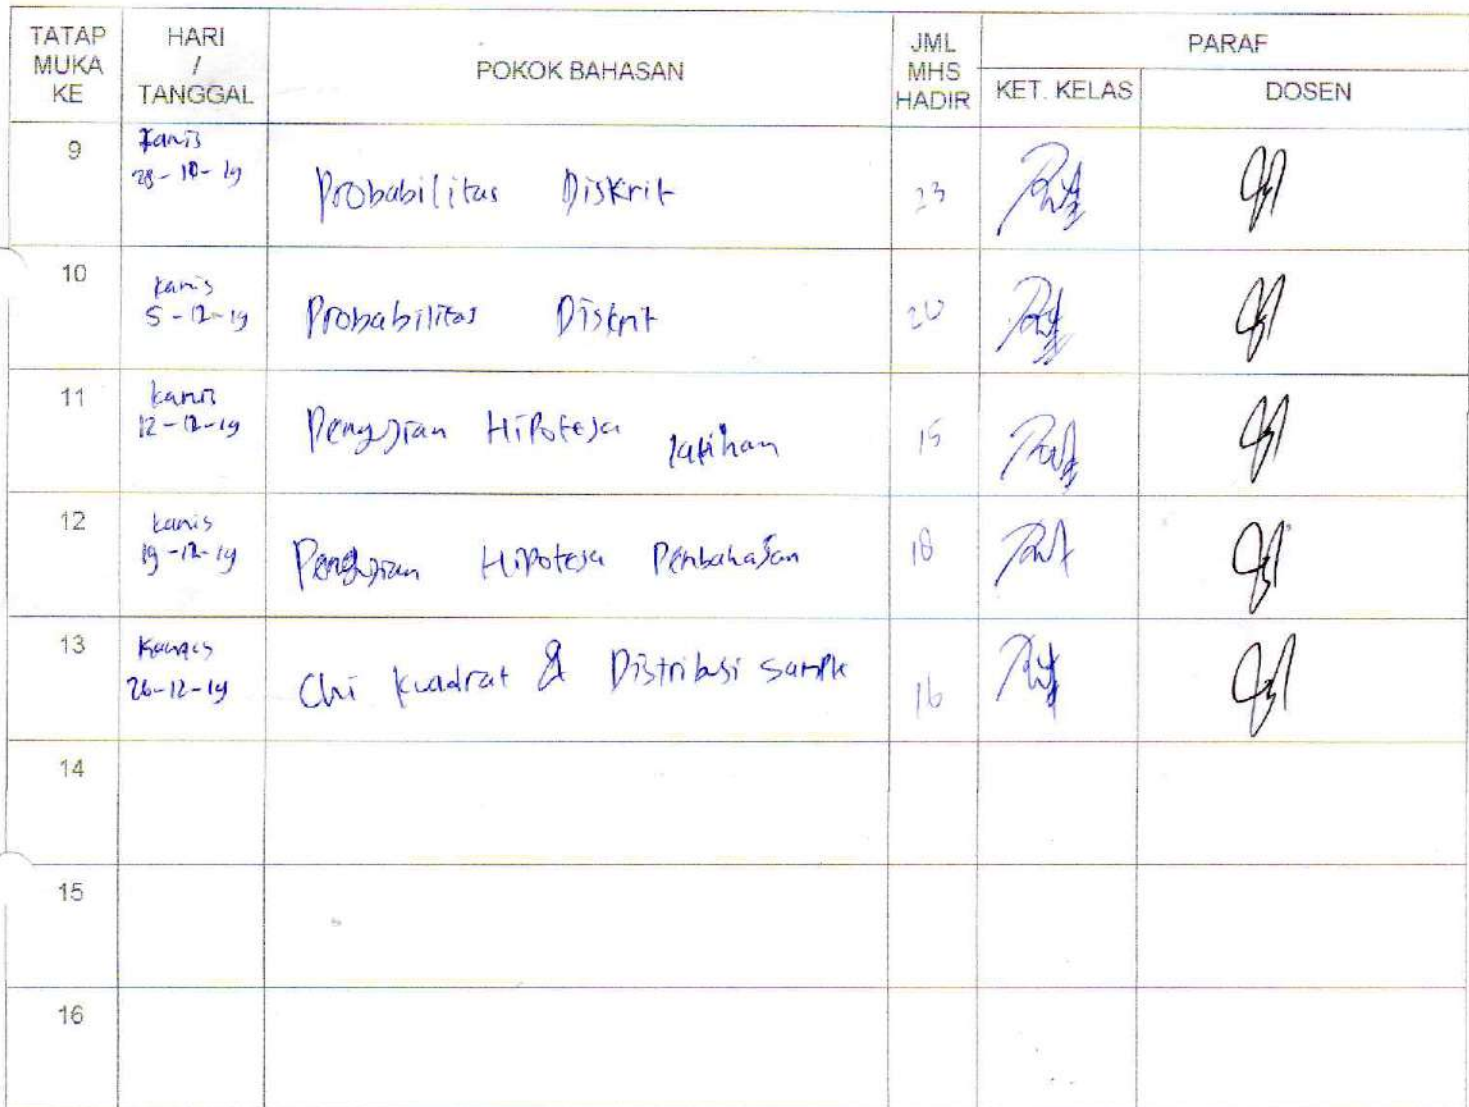 TATAP MUKA KE HARI / TANGGAL POKOK BAHASAN JML MHS HADIR PARAF
KET. KELAS DOSEN
9 Kamis 28-10-19 Probabilitas Diskrit 23
10 Kamis 5-12-19 Probabilitas Diskrit 20
11 Kamis 12-12-19 Pengujian Hipotesa latihan 15
12 Kamis 19-12-19 Pengujian Hipotesa Pembahasan 18
13 Kamis 26-12-19 Chi kuadrat & Distribusi sample 16
14
15
16